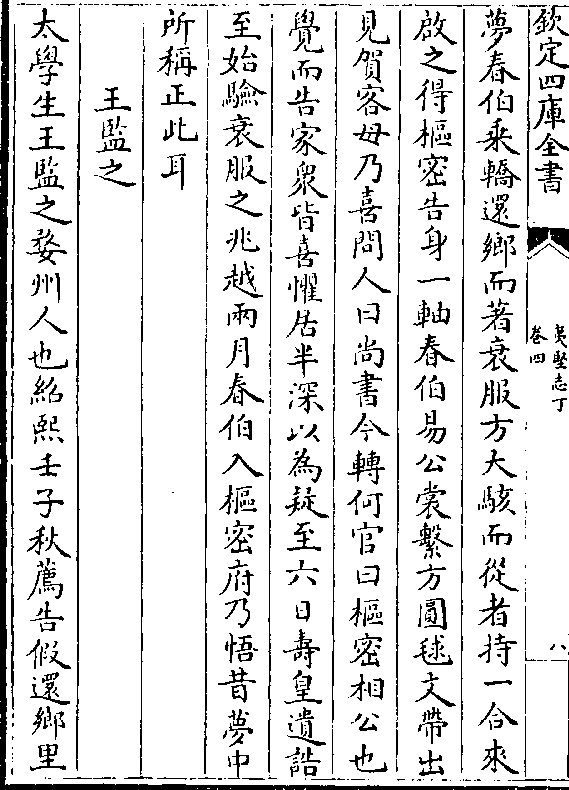 欽定四庫全書
夷堅志丁
卷四
八
夢春伯乘轎還鄉而著衰服方大駭而從者持一合來
啟之得樞密告身一軸春伯易公裳繫方圓毬文帶出
見賀客母乃喜問人曰尚書今轉何官曰樞密相公也
覺而告家衆皆喜懼居半深以為疑至六日壽皇遺誥
至始驗衰服之兆越兩月春伯入樞密府乃悟昔夢中
所稱正此耳
王監之
太學生王監之婺州人也紹熙壬子秋薦告假還鄉里